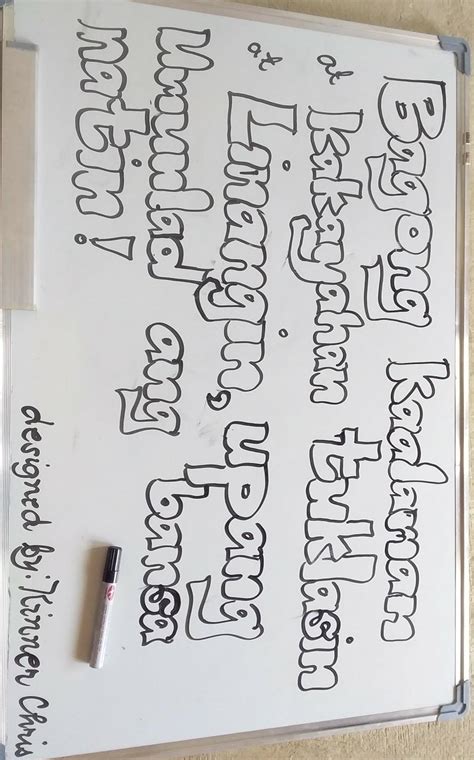 Bagong kaalaman
at kakayahan tuklasin
at Linangin, upang
Umunlad ang bansa
natin!
designed by: Kinner Chris